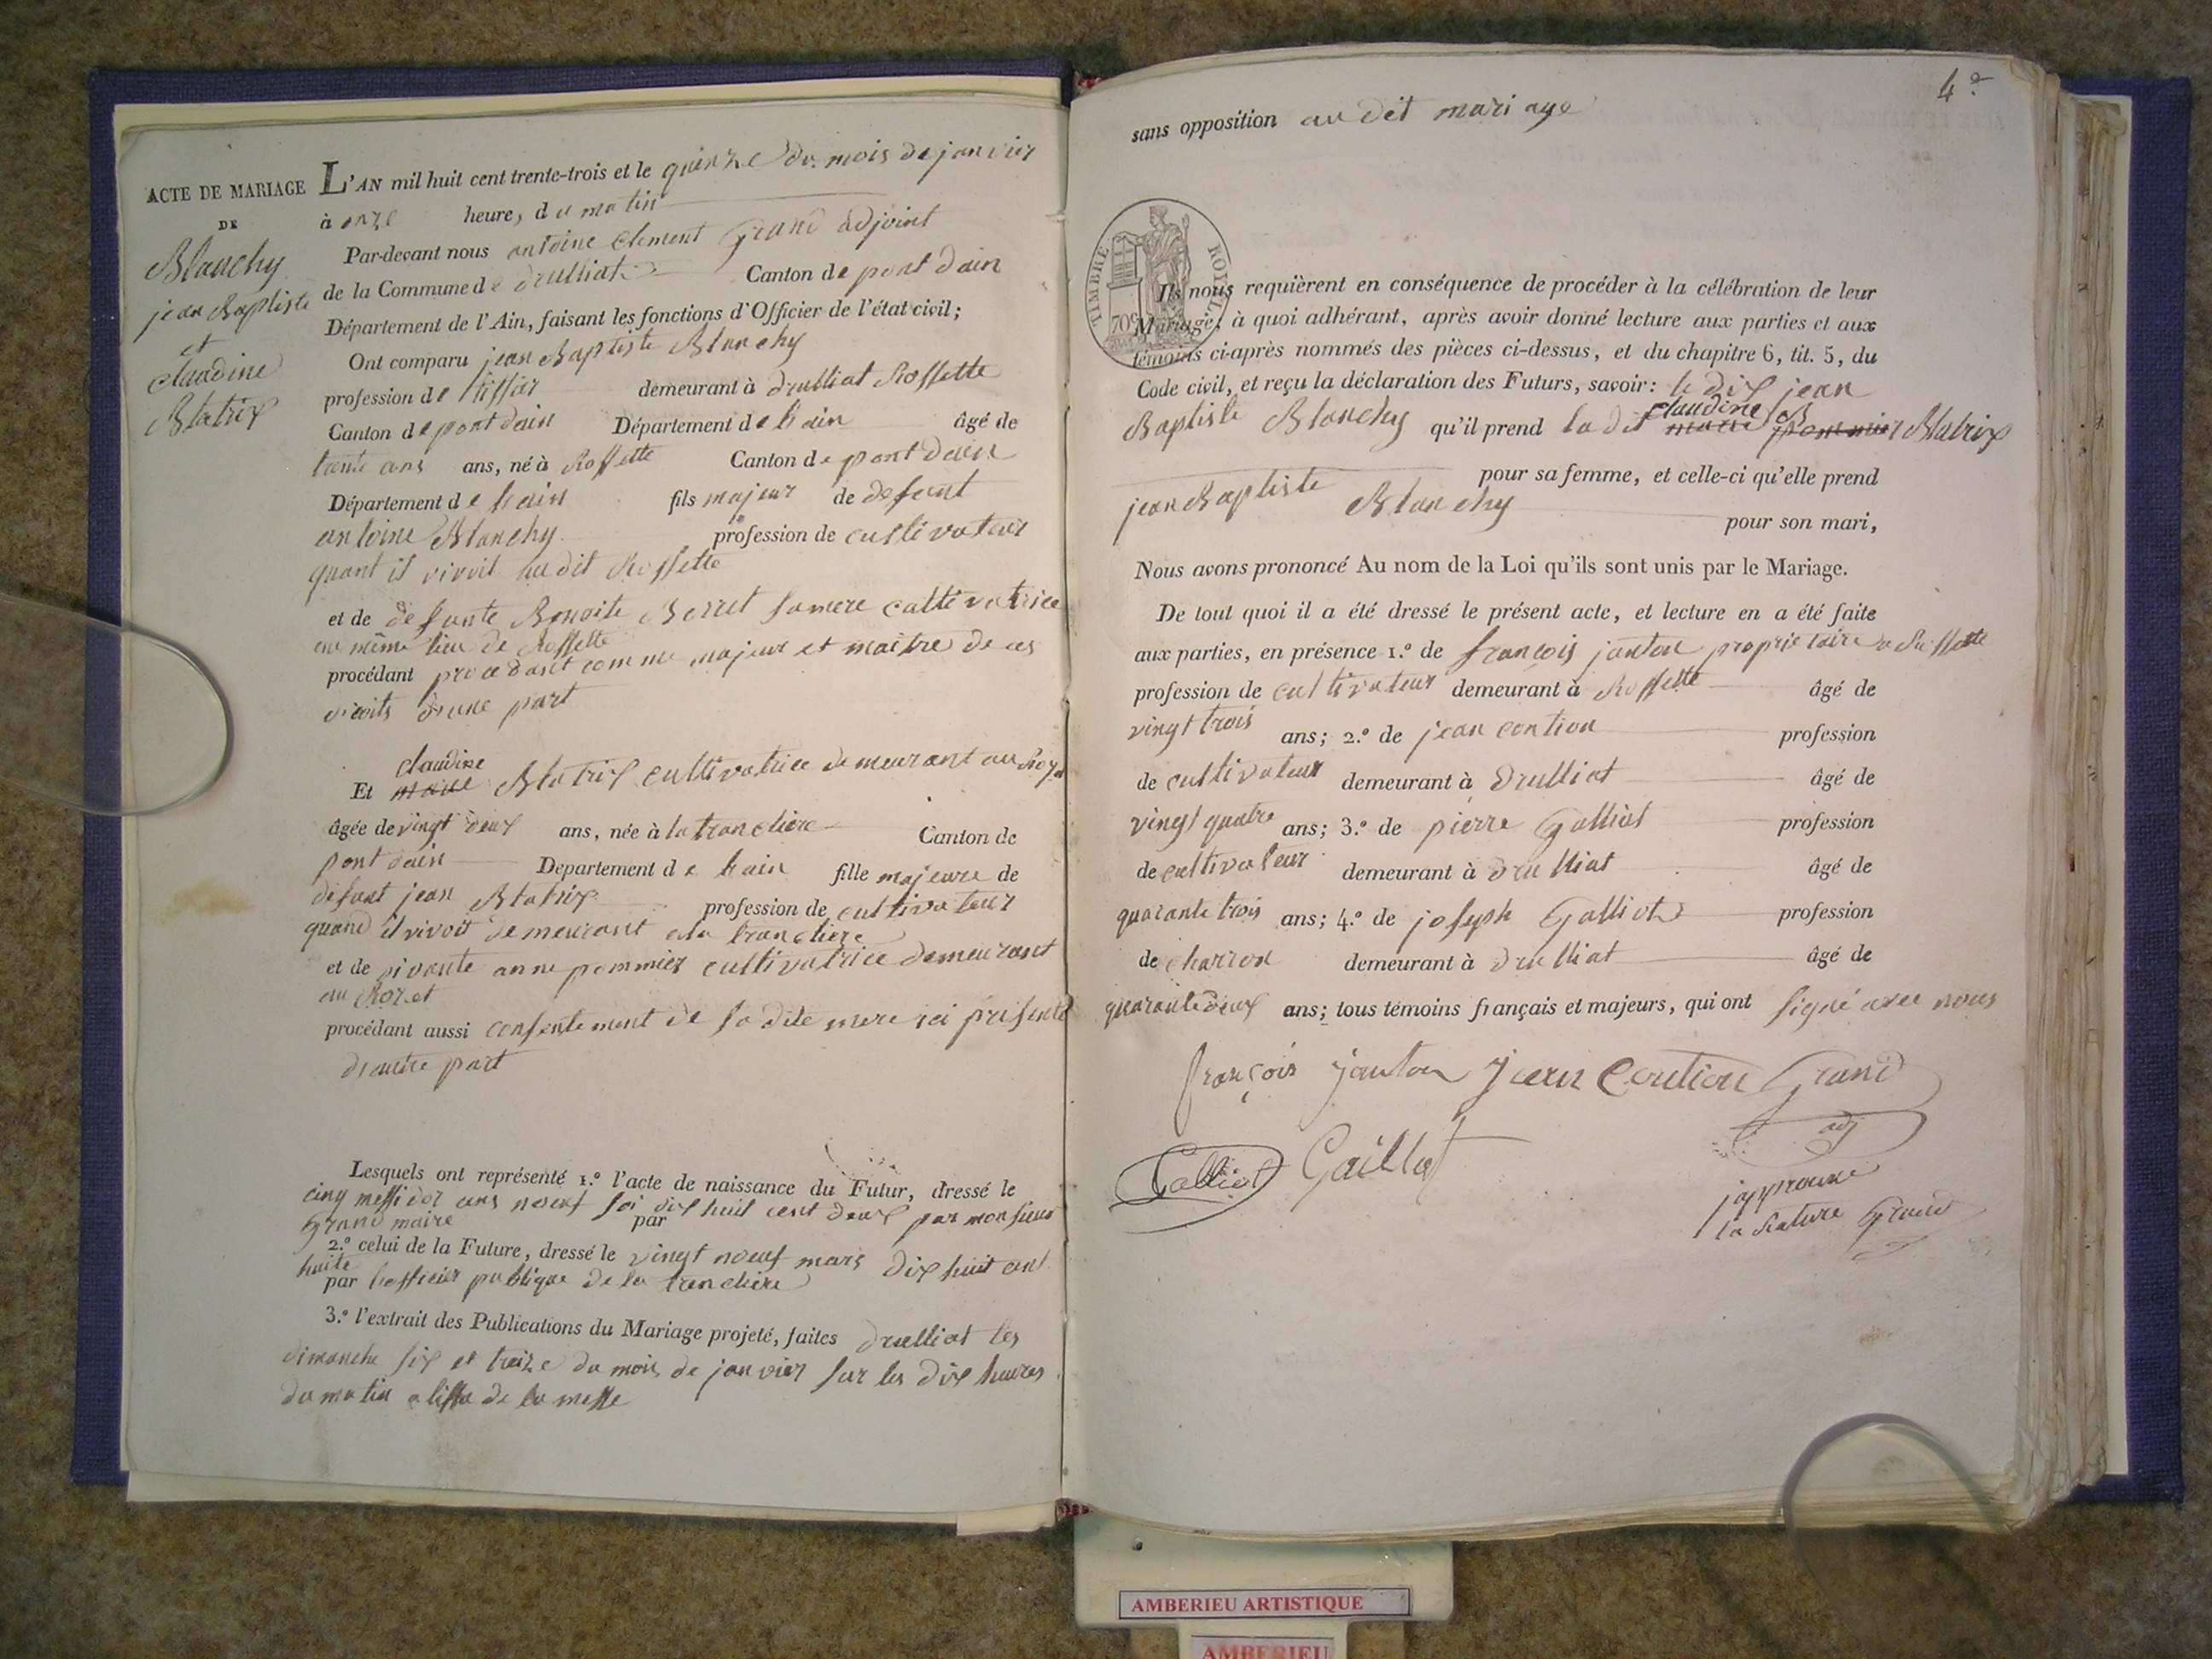 ACTE DE MARIAGE
DE
Blanchy
jean Baptiste
et
claudine
Blatrix
L'AN mil huit cent trente-trois et le quinze du mois de janvier
à onze heure, du matin
Par-devant nous antoine Clement Grand adjoint
de la Commune de druilliat Canton de pont dain
Département de l'Ain, faisant les fonctions d'Officier de l'état civil;
Ont comparu jean Baptiste Blanchy
profession de tissier demeurant à druilliat Rossette
Canton de pont dain Département de lain âgé de
trente ans ans, né à Rossette Canton de pont dain
Département de lain fils majeur de defunt
antoine Blanchy profession de cultivateur
quant il vivoit audit Rossette
et de defunte Benoite Berret sa mere cultivatrice
au même lieu de Rossette
procédant procedant comme majeur et maitre de ces
droits d'une part
claudine
Et marie Blatrix cultivatrice demeurant au
âgée de vingt deux ans, née à la tranchere Canton de
pont dain Departement de lain fille majeure de
defunt jean Blatrix profession de cultivateur
quand il vivoit demeurant a la tranchere
et de vivante anne pommier cultivatrice demeurant
au Rozet
procédant aussi consentement de sa dite mere ici présente
d'autre part
Lesquels ont représenté 1.º l'acte de naissance du Futur, dressé le
cinq messidor ans neuf soi dix huit cent deux par monsieur
Grand maire par
2.º celui de la Future, dressé le vingt neuf mars dix huit cent
huite
par l'officier publique de la tranchere
3.º l'extrait des Publications du Mariage projeté, faites druilliat les
dimanche six et treize du mois de janvier sur les dix heures
du matin a lissu de la messe
4e
sans opposition au dit mariage
TIMBRE ROYAL
70c
Ils nous requièrent en conséquence de procéder à la célébration de leur
Mariage; à quoi adhérant, après avoir donné lecture aux parties et aux
témoins ci-après nommés des pièces ci-dessus, et du chapitre 6, tit. 5, du
Code civil, et reçu la déclaration des Futurs, savoir: le dit jean
claudine B
Baptiste Blanchy qu'il prend la dit marie pommier Blatrix
pour sa femme, et celle-ci qu'elle prend
jean Baptiste Blanchy
pour son mari,
Nous avons prononcé Au nom de la Loi qu'ils sont unis par le Mariage.
De tout quoi il a été dressé le présent acte, et lecture en a été faite
aux parties, en présence 1.º de françois janton proprietaire a Rossette
profession de cultivateur demeurant à Rossette âgé de
vingt trois ans; 2.º de jean contion profession
de cultivateur demeurant à druilliat âgé de
vingt quatre ans; 3.º de pierre Galliot profession
de cultivateur demeurant à druilliat âgé de
quarante trois ans; 4.º de joseph Galliot profession
de charron demeurant à druilliat âgé de
quarante deux ans; tous témoins français et majeurs, qui ont signé avec nous
françois janton Jean Contion Grand
adj
Galliot Gaillot
japprouve
la rature Grand
AMBERIEU ARTISTIQUE
AMBERIEU